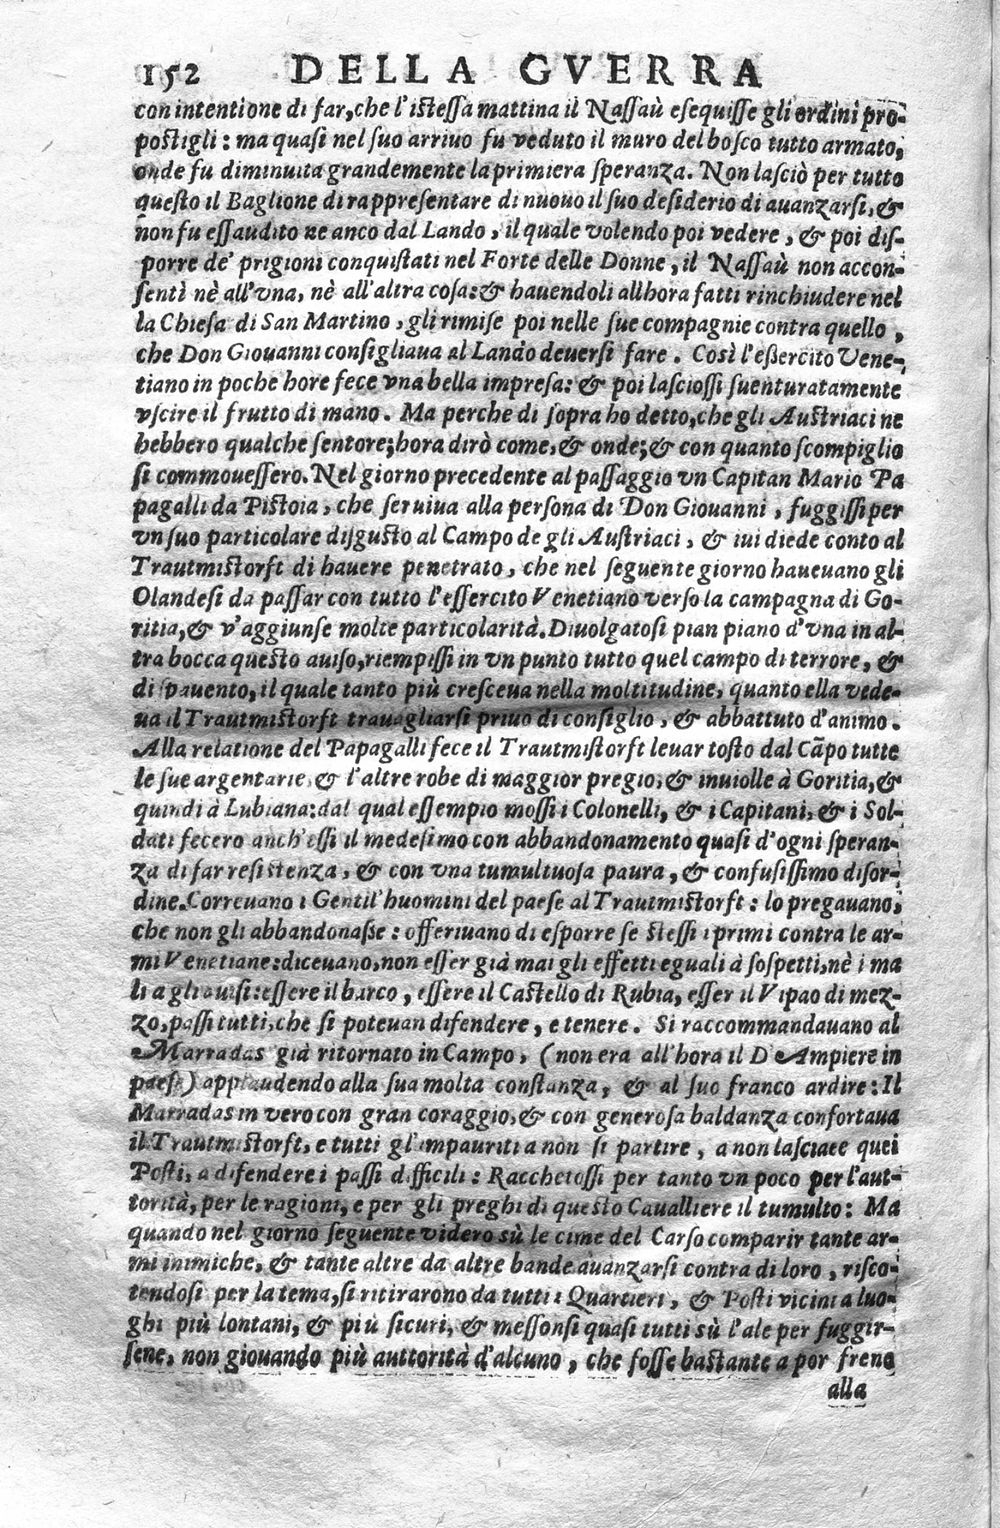 152 DELLA GVERRA
con intentione di far, che l'istessa mattina il Nassaù esequisse gli ordini pro-
postigli: ma quasi nel suo arriuo fu veduto il muro del bosco tutto armato,
onde fu diminuita grandemente la primiera speranza. Non lasciò per tutto
questo il Baglione di rappresentare di nuouo il suo desiderio di auanzarsi, &
non fu essaudito ne anco dal Lando, il quale volendo poi vedere, & poi dis-
porre de' prigioni conquistati nel Forte delle Donne, il Nassaù non accon-
sentì nè all'vna, nè all'altra cosa: & hauendoli allhora fatti rinchiudere nel
la Chiesa di San Martino, gli rimise poi nelle sue compagnie contra quello,
che Don Giouanni consigliaua al Lando deuersi fare. Così l'essercito Vene-
tiano in poche hore fece vna bella impresa: & poi lasciossi suenturatamente
vscire il frutto di mano. Ma perche di sopra ho detto, che gli Austriaci ne
hebbero qualche sentore; hora dirò come, & onde; & con quanto scompiglio
si commouessero. Nel giorno precedente al passaggio vn Capitan Mario Pa
pagalli da Pistoia, che seruiua alla persona di Don Giouanni, fuggissi per
vn suo particolare disgusto al Campo de gli Austriaci, & iui diede conto al
Trautmistorft di hauere penetrato, che nel seguente giorno haueuano gli
Olandesi da passar con tutto l'essercito Venetiano verso la campagna di Go-
ritia, & v'aggiunse molte particolarità. Diuolgatosi pian piano d'vna in al-
tra bocca questo auiso, riempissi in vn punto tutto quel campo di terrore, &
di spauento, il quale tanto più cresceua nella moltitudine, quanto ella vede-
ua il Trautmistorft trauagliarsi priuo di consiglio, & abbattuto d'animo.
Alla relatione del Papagalli fece il Trautmistorft leuar tosto dal Cāpo tutte
le sue argentarie, & l'altre robe di maggior pregio, & inuiolle à Goritia, &
quindi à Lubiana: dal qual essempio mossi i Colonelli, & i Capitani, & i Sol-
dati fecero anch'essi il medesimo con abbandonamento quasi d'ogni speran-
za di far resistenza, & con vna tumultuosa paura, & confusissimo disor-
dine. Correuano i Gentil'huomini del paese al Trautmistorft: lo pregauano,
che non gli abbandonasse: offeriuano di esporre se stessi i primi contra le ar-
mi Venetiane: diceuano, non esser già mai gli effetti eguali à sospetti, nè i ma
li a gli auisi: essere il barco, essere il Castello di Rubia, esser il Vipao di mez-
zo, passi tutti, che si poteuan difendere, e tenere. Si raccommandauano al
Marradas già ritornato in Campo, (non era all'hora il D'Ampiere in
paese) applaudendo alla sua molta constanza, & al suo franco ardire: Il
Marradas in vero con gran coraggio, & con generosa baldanza confortaua
il Trautmistorft, e tutti gl'impauriti a non si partire, a non lasciare quei
Posti, a difendere i passi difficili: Racchetossi per tanto vn poco per l'aut-
torità, per le ragioni, e per gli preghi di questo Caualliere il tumulto: Ma
quando nel giorno seguente videro sù le cime del Carso comparir tante ar-
mi inimiche, & tante altre da altre bande auanzarsi contra di loro, risco-
tendosi per la tema, si ritirarono da tutti i Quartieri, & Posti vicini a luo-
ghi più lontani, & più sicuri, & messonsi quasi tutti sù l'ale per fuggir-
sene, non giouando più auttorità d'alcuno, che fosse bastante a por freno
alla